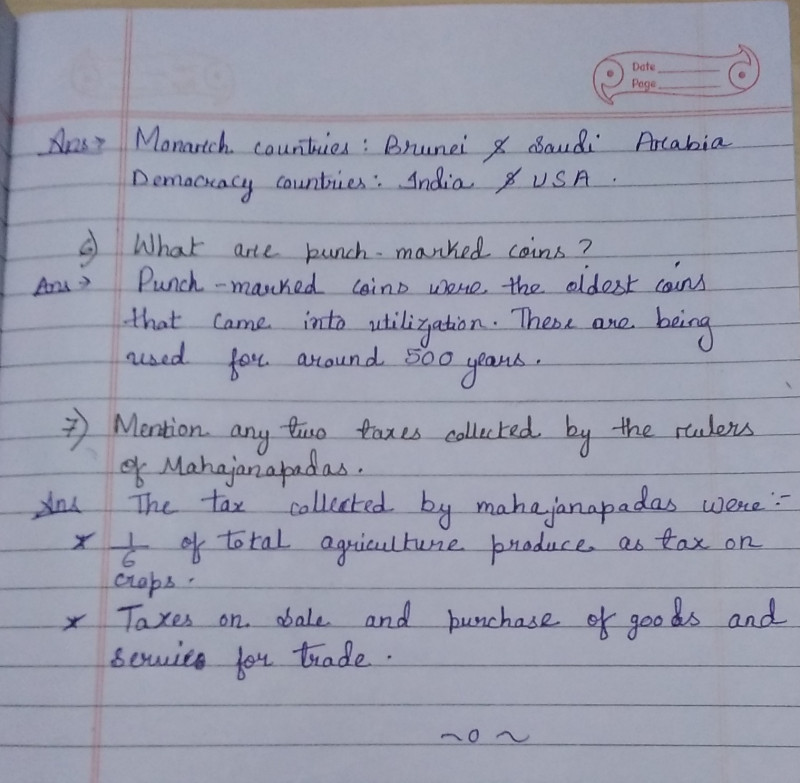 Date
Page
Ans→ Monarch countries: Brunei & Saudi Arabia
Democracy countries: India & USA.
6) What are punch-marked coins?
Ans→ Punch-marked coins were the oldest coins
that came into utilization. These are being
used for around 500 years.
7) Mention any two taxes collected by the rulers
of Mahajanapadas.
Ans The tax collected by mahajanapadas were:-
* 1/6 of total agriculture produce as tax on
crops.
* Taxes on sale and purchase of goods and
service for trade.
~o~